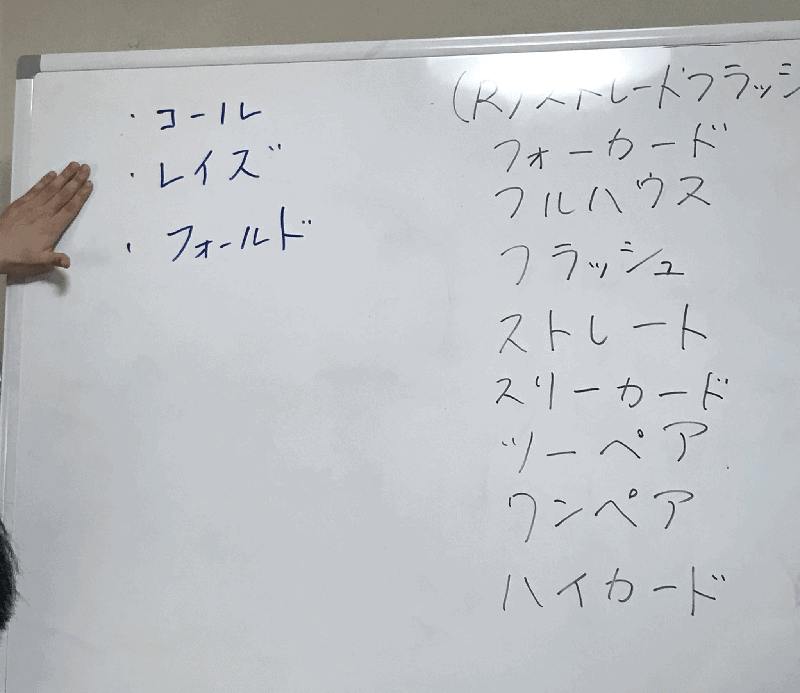 ・コール
・レイズ
・フォールド
(R)ストレートフラッシ
フォーカード
フルハウス
フラッシュ
ストレート
スリーカード
ツーペア
ワンペア
ハイカード